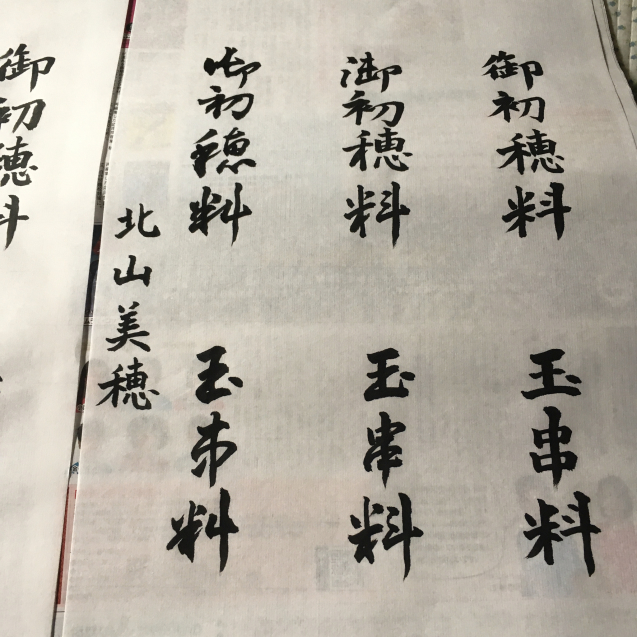 御初穂料
玉串料
御初穂料
玉串料
御初穂料
玉串料
北山美穂
御初穂料